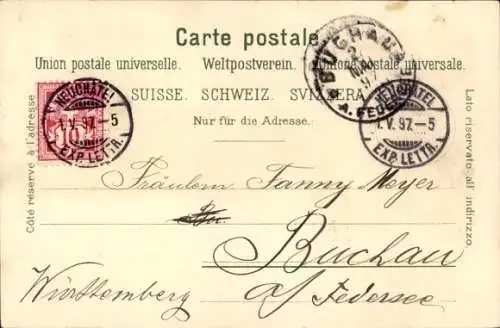 Carte postale.
Union postale universelle. Weltpostverein. Unione postale universale.
SUISSE. SCHWEIZ. SVIZZERA.
Nur für die Adresse.
Côté réservé à l'adresse
Lato riservato all' indirizzo
NEUCHÂTEL
1. V. 97.–5
EXP. LETTR.
NEUCHÂTEL
1. V. 97.–5
EXP. LETTR.
BUCHAU
MAI
97
A. FEDERSEE
Fräulein Fanny Meyer
Buchau
a/ Federsee
Württemberg